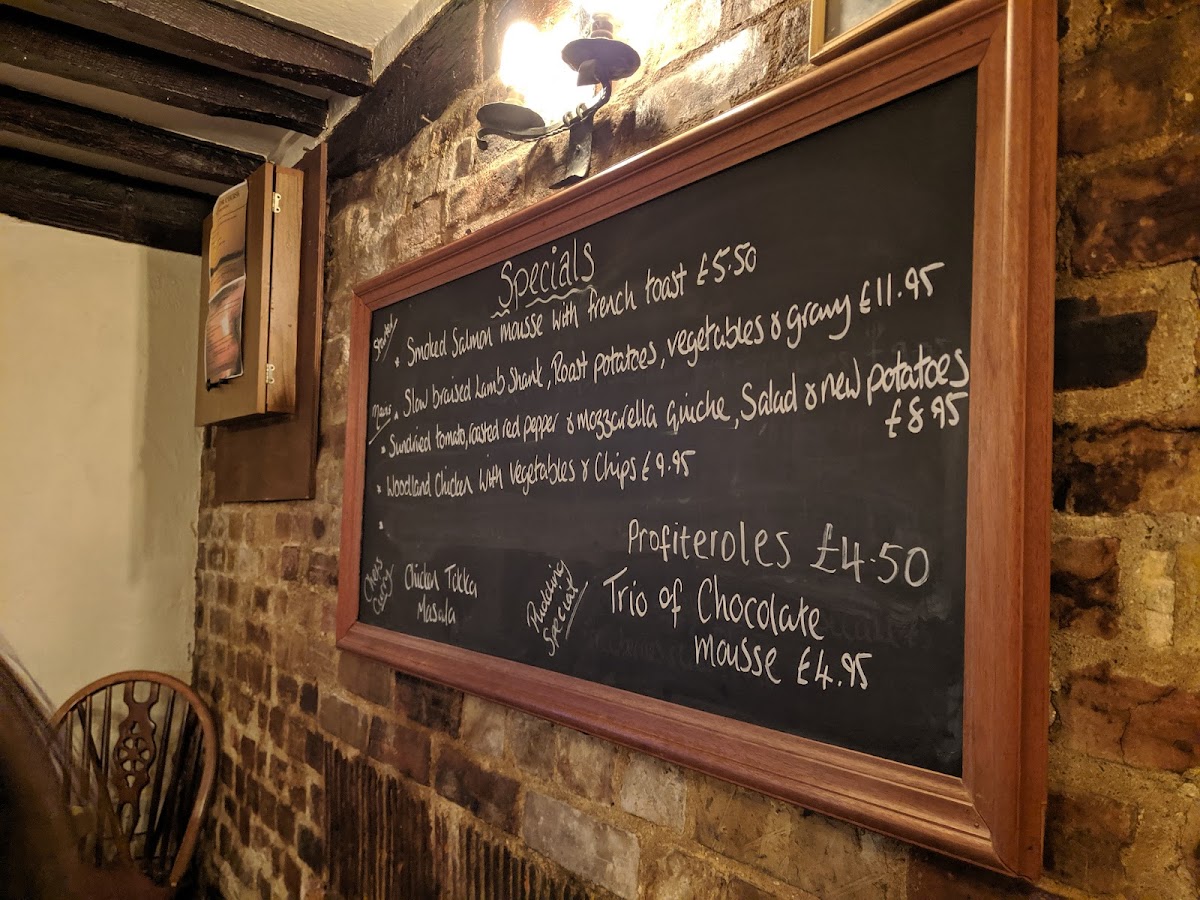 Specials
Starter
Smoked Salmon mousse with french toast £5.50
Mains
Slow braised Lamb Shank, Roast potatoes, vegetables & gravy £11.95
Sundried tomato, roasted red pepper & mozzarella Quiche, Salad & new potatoes
£8.95
Woodland Chicken with vegetables & Chips £9.95
Chefs
Curry
Chicken Tikka
Masala
Pudding
Special
Profiteroles £4.50
Trio of Chocolate
mousse £4.95